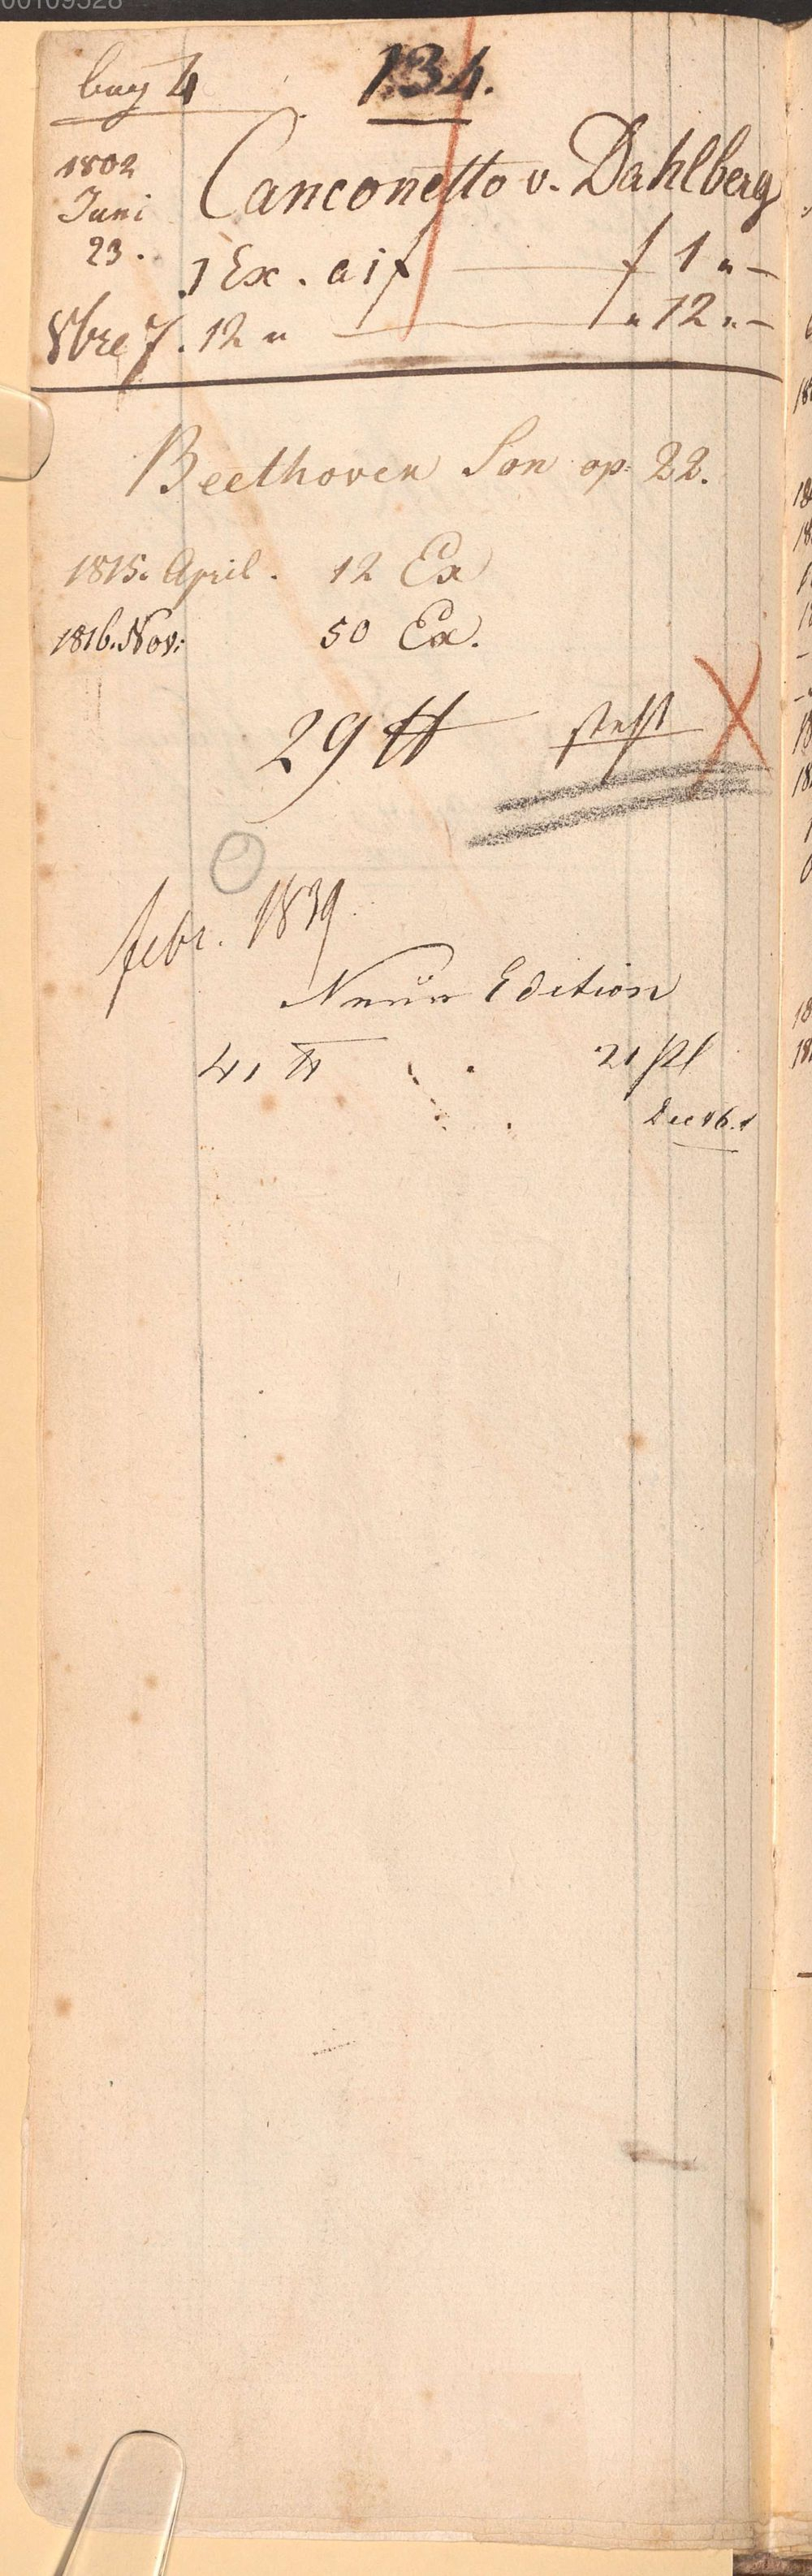 00109528
134.
1802 Canconetto v. Dahlberg
Juni
23. 1 Ex. a 1 f f 1 " -
8bre 7. 12 " " 12 " -
Beethoven Son op. 22.
1815. April. 12 Ex
1816. Nov: 50 Ex.
29 ℔
febr. 1839.
Neue Edition
41 ℔ 21 Pl
Dec 46.